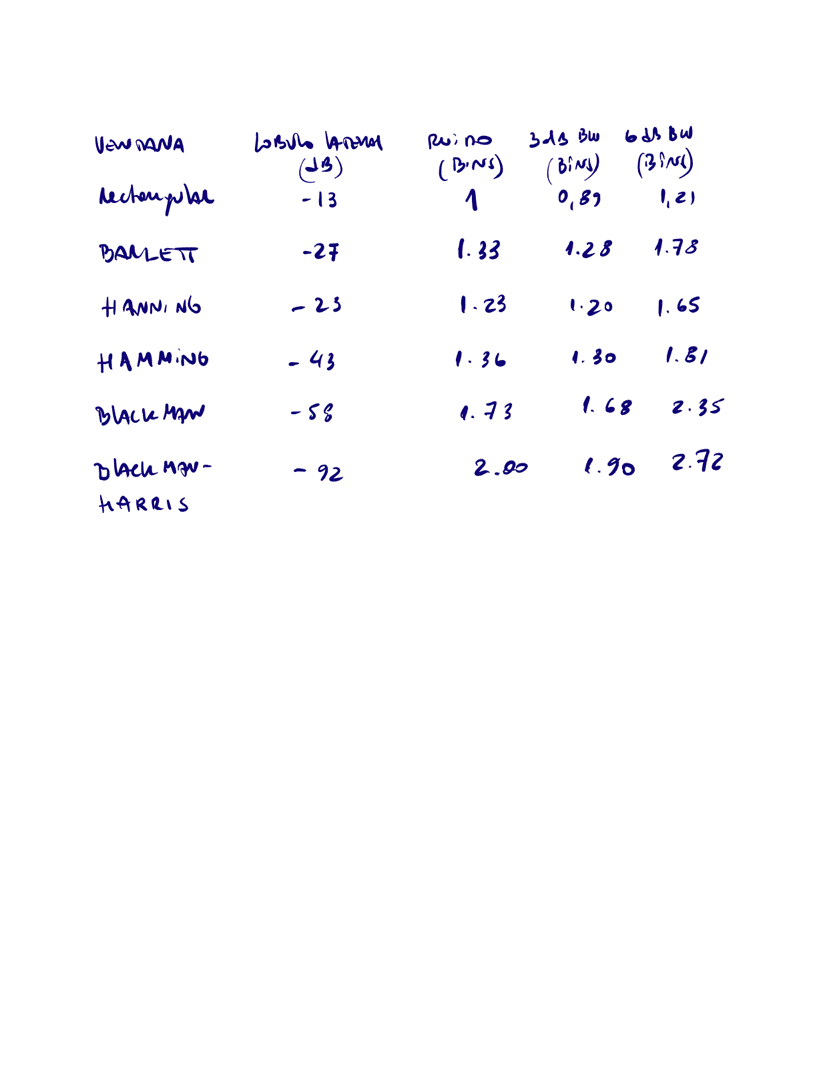 VENTANA LOBULO LATERAL RUIDO 3dB BW 6dB BW
(dB) (BINS) (BINS) (BINS)
Rectangular -13 1 0,89 1,21
BARLETT -27 1.33 1.28 1.78
HANNING -23 1.23 1.20 1.65
HAMMING -43 1.36 1.30 1.81
BLACKMAN -58 1.73 1.68 2.35
BLACKMAN- -92 2.00 1.90 2.72
HARRIS